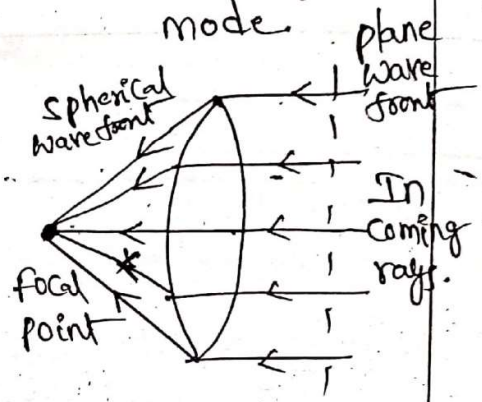 mode.
plane
wave
front
Spherical
wavefront
In
coming
rays.
focal
point